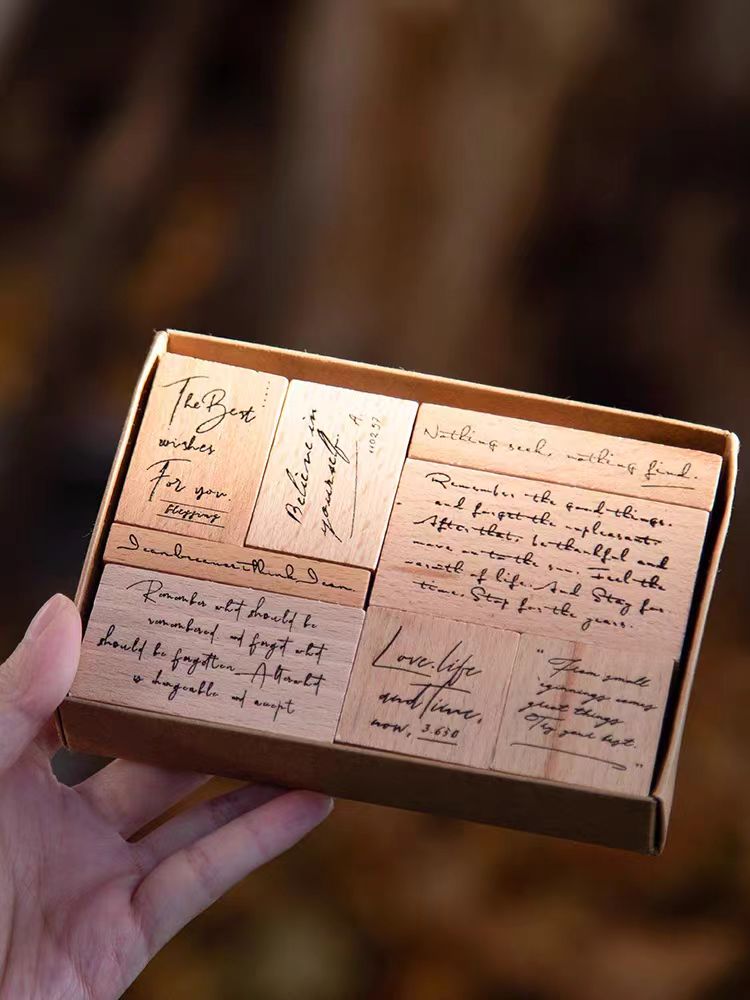 The Best
wishes
For you
Blessing
Believe in
yourself.
A.
110297
Nothing seek, nothing find.
Remember the good things.
and forget the unpleasant.
After that, be thankful and
move on to the sun. Feel the
warmth of life. And Stay for
time. Stop for the years.
I can because i think I can
Remember what should be
remembered and forget what
should be forgotten. Alter what
is changeable and accept
Love. life
and Time.
now, 3.650
"From small
great things
Try your best.
"